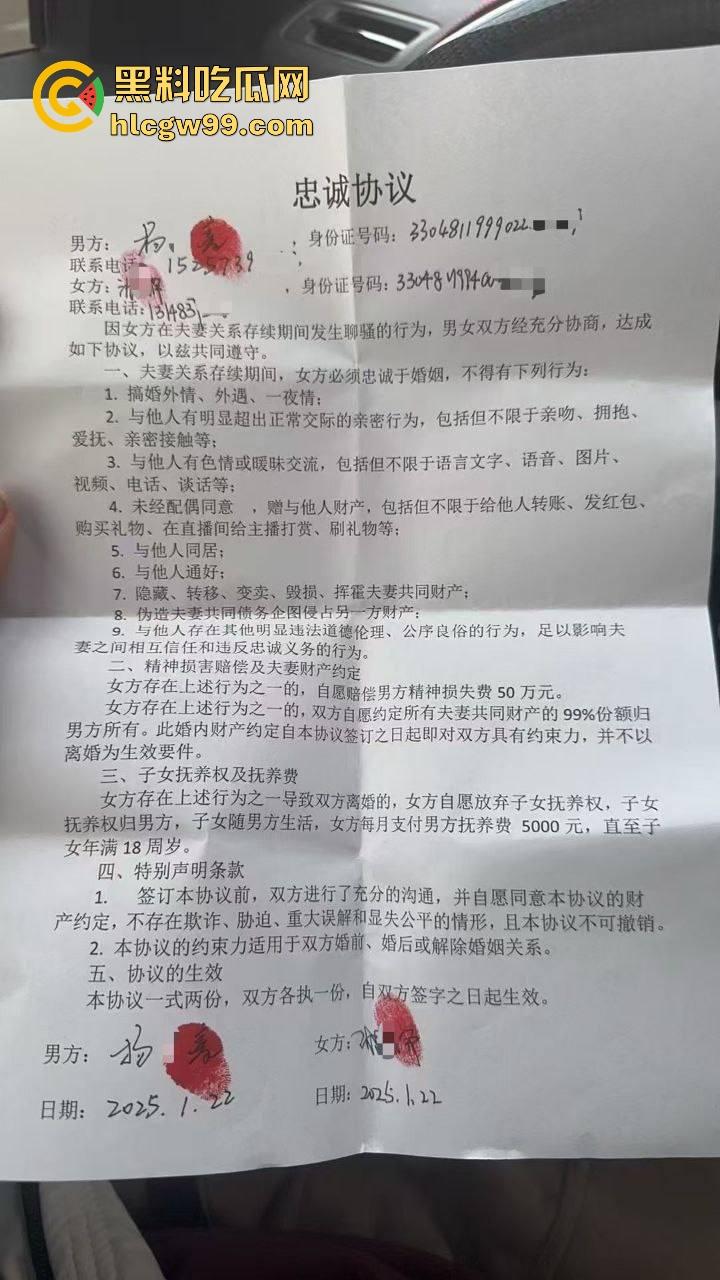 黑料吃瓜网
hlcgw99.com
忠诚协议
男方： 杨 身份证号码：330481199902
联系电话 1525739
女方： 身份证号码：
联系电话:
因女方在夫妻关系存续期间发生聊骚的行为，男女双方经充分协商，达成
如下协议，以兹共同遵守。
一、夫妻关系存续期间，女方必须忠诚于婚姻，不得有下列行为：
1. 搞婚外情、外遇、一夜情；
2. 与他人有明显超出正常交际的亲密行为，包括但不限于亲吻、拥抱、
爱抚、亲密接触等；
3. 与他人有色情或暧昧交流，包括但不限于语言文字、语音、图片、
视频、电话、谈话等；
4. 未经配偶同意 ，赠与他人财产，包括但不限于给他人转账、发红包、
购买礼物、在直播间给主播打赏、刷礼物等；
5. 与他人同居；
6. 与他人通好；
7. 隐藏、转移、变卖、毁损、挥霍夫妻共同财产；
8. 伪造夫妻共同债务企图侵占另一方财产；
9. 与他人存在其他明显违法道德伦理、公序良俗的行为，足以影响夫
妻之间相互信任和违反忠诚义务的行为。
二、精神损害赔偿及夫妻财产约定
女方存在上述行为之一的，自愿赔偿男方精神损失费 50 万元。
女方存在上述行为之一的，双方自愿约定所有夫妻共同财产的 99%份额归
男方所有。此婚内财产约定自本协议签订之日起即对双方具有约束力，并不以
离婚为生效要件。
三、子女抚养权及抚养费
女方存在上述行为之一导致双方离婚的，女方自愿放弃子女抚养权，子女
抚养权归男方，子女随男方生活，女方每月支付男方抚养费 5000 元，直至子
女年满 18 周岁。
四、特别声明条款
1. 签订本协议前，双方进行了充分的沟通，并自愿同意本协议的财
产约定，不存在欺诈、胁迫、重大误解和显失公平的情形，且本协议不可撤销。
2. 本协议的约束力适用于双方婚前、婚后或解除婚姻关系。
五、协议的生效
本协议一式两份，双方各执一份，自双方签字之日起生效。
男方： 杨 女方：
日期： 2025.1.22 日期：2025.1.22